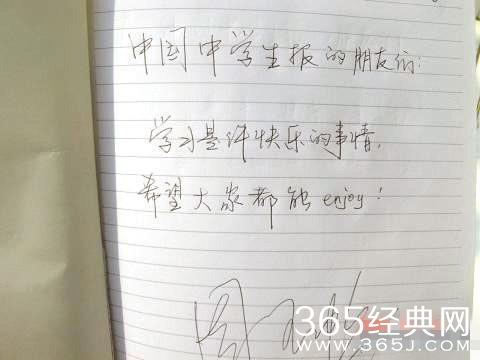 中国中学生报的朋友们：
学习是件快乐的事情，
希望大家都能enjoy！
365经典网
www.365J.com